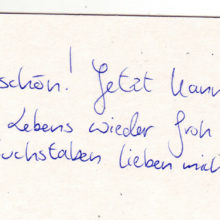 schön! Jetzt kann
Lebens wieder froh
uchstaben lieben mich